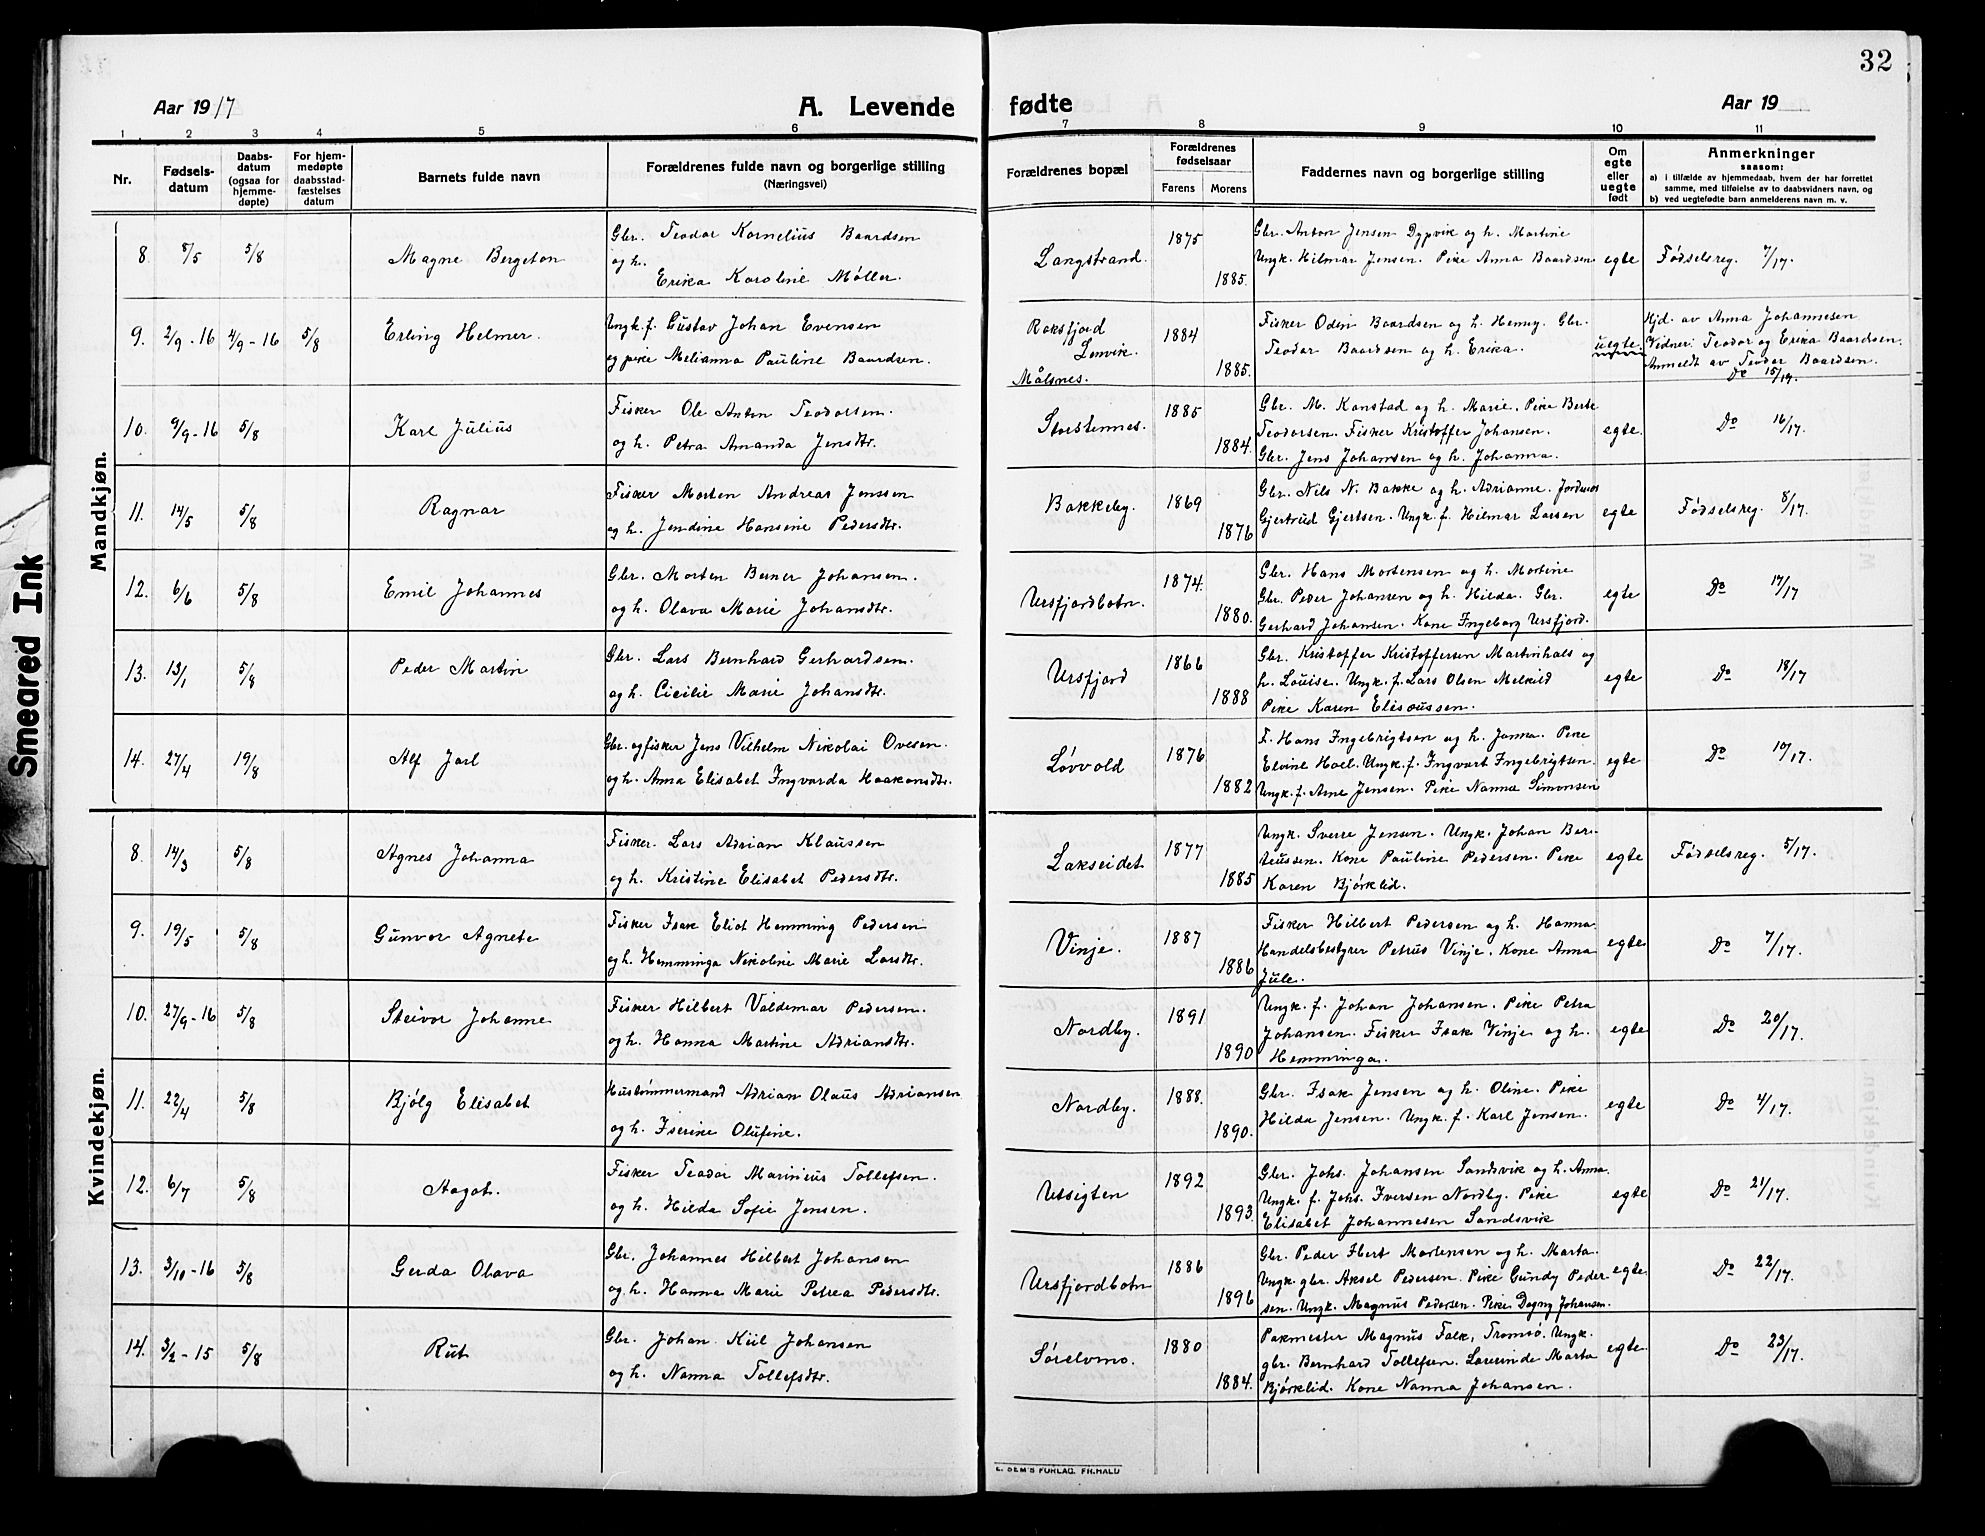 32
Aar 1917
A. Levende fødte
Aar 19
1 2 3 4 5 6 7 8 9 10 11
Nr.
Fødsels-
datum
Daabs-
datum
(ogsaa for
hjemme-
døpte)
For hjem-
medøpte
daabsstad-
fæstelses
datum
Barnets fulde navn
Forældrenes fulde navn og borgerlige stilling
(Næringsvei)
Forældrenes bopæl
Forældrenes
fødselsaar
Farens Morens
Faddernes navn og borgerlige stilling
Om
egte
eller
uegte
født
Anmerkninger
saasom:
a) i tilfælde av hjemmedaab, hvem der har forrettet
samme, med tilføielse av to daabsvidners navn, og
b) ved uegtefødte barn anmelderens navn m. v.
Mandkjøn.
8. 8/5 5/8 Magne Bergeton
Gbr. Teodor Kornelius Baardsen
og h.
Erika Karoline Møller.
Langstrand.
1875
1885.
Gbr. Anton Jensen Dypvik og h. Martine
Ungk. Hilmar Jensen. Pike Anna Baardsen
egte
Fødselsreg. 7/17.
9. 2/9-16 4/9-16 5/8 Erling Helmer.
Ungk. f. Gustav Johan Evensen
og pike Melianna Pauline Baardsen.
Roksfjord
Lenvik.
Målsnes.
1884
1885.
Fisker Odin Baardsen og h. Henny. Gbr.
Teodor Baardsen og h. Erika.
uegte
Hjd. av Anna Johannesen
Vidner: Teodor og Erika Baardsen.
Anmeldt av Teodor Baardsen.
Do 15/17.
10. 9/9-16 5/8 Karl Julius
Fisker Ole Anton Teodorsen.
og h. Petra Amanda Jensdtr.
Storstennes.
1885
1884.
Gbr. M. Konstad og h. Marie. Pike Berte
Teodorsen. Fisker Kristoffer Johansen.
Gbr. Jens Johansen og h. Johanna.
egte.
Do 16/17.
11. 14/5 5/8 Ragnar
Fisker Morten Andreas Jenssen
og h. Jendine Hansine Pedersdtr.
Bakkeby.
1869
1876
Gbr. Nils N. Bakke og h. Adrianne. Jordmor
Gjertrud Gjertsen. Ungk. f. Hilmar Larsen
egte
Fødselsreg. 8/17.
12. 6/6 5/8 Emil Johannes
Gbr. Morten Berner Johansen.
og h. Olava Marie Johansdtr.
Ursfjordbotn.
1874.
1880.
Gbr. Hans Mortensen og h. Martine
Gbr. Peder Johansen og h. Hilda. Gbr.
Gerhard Johansen. Kone Ingeborg Ursfjord.
egte
Do 17/17
13. 13/1 5/8 Peder Martin
Gbr. Lars Bernhard Gerhardsen.
og h. Cicilie Marie Johansdtr.
Ursfjord
1866
1888
Gbr. Kristoffer Kristoffersen Martinhals og
h. Louise. Ungk. f. Lars Olsen Melkild
Pike Karen Elisæussen.
egte
Do 18/17
14. 27/4 19/8 Alf Jarl
Gbr. og fisker Jens Vilhelm Nikolai Ovesen.
og h. Anna Elisabet Ingvarda Haakonsdtr.
Løvvold
1876
1882
F. Hans Ingebrigtsen og h. Janna. Pike
Elvine Hoel. Ungk. f. Ingvart Ingebrigtsen.
Ungk. f. Arne Jensen. Pike Nanna Simonsen
egte
Do 10/17.
Kvindekjøn.
8. 14/3 5/8 Agnes Johanna
Fisker. Lars Adrian Klaussen
og h. Kristine Elisabet Pedersdtr.
Lakseidet
1877
1885
Ungk. Sverre Jensen. Ungk. Johan Ber-
teussen. Kone Pauline Pedersen. Pike
Karen Bjørklid.
egte
Fødselsreg. 5/17.
9. 19/5 5/8 Gunvor Agnete
Fisker Isak Eliot Hemming Pedersen
og h. Hemminga Nikoline Marie Larsdtr.
Vinje.
1887
1886
Fisker Hilbert Pedersen og h. Hanna.
Handelsbestyrer Petrus Vinje. Kone Anna
Jule.
egte
Do 7/17.
10. 27/9-16 5/8 Steivor Johanne
Fisker Hilbert Valdemar Pedersen.
og h. Hanna Martine Adriansdtr.
Nordby.
1891
1890
Ungk. f. Johan Johansen. Pike Petra
Johansen. Fisker Isak Vinje og h.
Hemminga.
egte
Do 20/17.
11. 22/4 5/8 Bjølg Elisabet
Hustømmermand Adrian Olaus Adriansen
og h. Iserine Olufine.
Nordby.
1888.
1890.
Gbr. Isak Jensen og h. Oline. Pike
Hilda Jensen. Ungk. f. Karl Jensen.
egte
Do 4/17.
12. 6/7 5/8 Aagot.
Fisker Teodor Marinius Tollefsen.
og h. Hilda Sofie Jensen.
Utsigten
1892
1893.
Gbr. Johs. Johansen Sandsvik og h. Anna.
Ungk. f. Johs. Iversen Nordby. Pike
Elisabet Johannesen Sandsvik
egte
Do 21/17.
13. 3/10-16 5/8 Gerda Olava
Gbr. Johannes Hilbert Johansen
og h. Hanna Marie Petrea Pedersdtr.
Ursfjordbotn
1886
1896
Gbr. Peder Ibert Mortensen og h. Marta.
Ungk. gbr. Aksel Pedersen. Pike Gundy Peder-
sen. Ungk. Magnus Pedersen. Pike Dagny Johansen.
egte
Do 22/17.
14. 3/2-15 5/8 Rut
Gbr. Johan Kiil Johansen
og h. Nanna Tollefsdtr.
Sørelvmo.
1880
1884.
Pakmester Magnus Falk, Tromsø. Ungk.
gbr. Bernhard Tollefsen. Lærerinde Marta
Bjørklid. Kone Nanna Johansen.
egte.
Do 23/17.
E. SEM'S FORLAG. FR.HALD
Smeared Ink